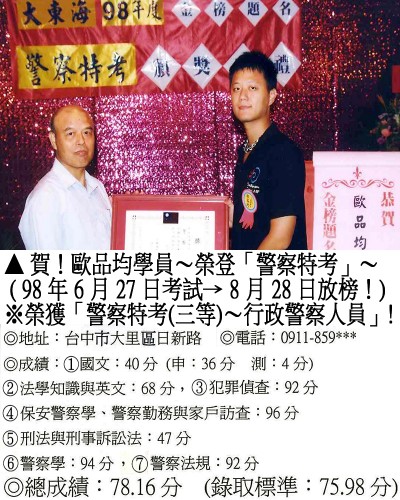 大東海 98年度 金榜題名
警察特考 頒獎
恭賀
歐品均
金榜題名
▲賀！歐品均學員～榮登「警察特考」～
(98年6月27日考試→8月28日放榜！)
※榮獲「警察特考(三等)～行政警察人員」!
◎地址：台中市大里區日新路 ◎電話：0911-859***
◎成績：①國文：40分 (申：36分 測：4分)
②法學知識與英文：68分，③犯罪偵查：92分
④保安警察學、警察勤務與家戶訪查：96分
⑤刑法與刑事訴訟法：47分
⑥警察學：94分，⑦警察法規：92分
◎總成績：78.16分 (錄取標準：75.98分)